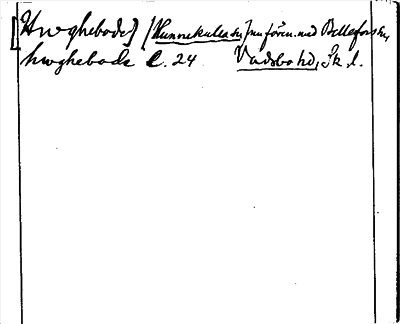 [Hwghebode] (Kunnekulla sn, nu fören. med Bellefors sn,
hwghebode C. 24 Vadsbo hd, Sk. l.